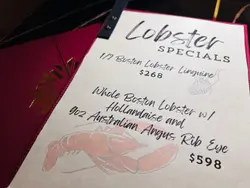 Lobster
SPECIALS
1/2 Boston Lobster Linguine
$268
Whole Boston Lobster w/
Hollandaise and
9oz Australian Angus Rib Eye
$598